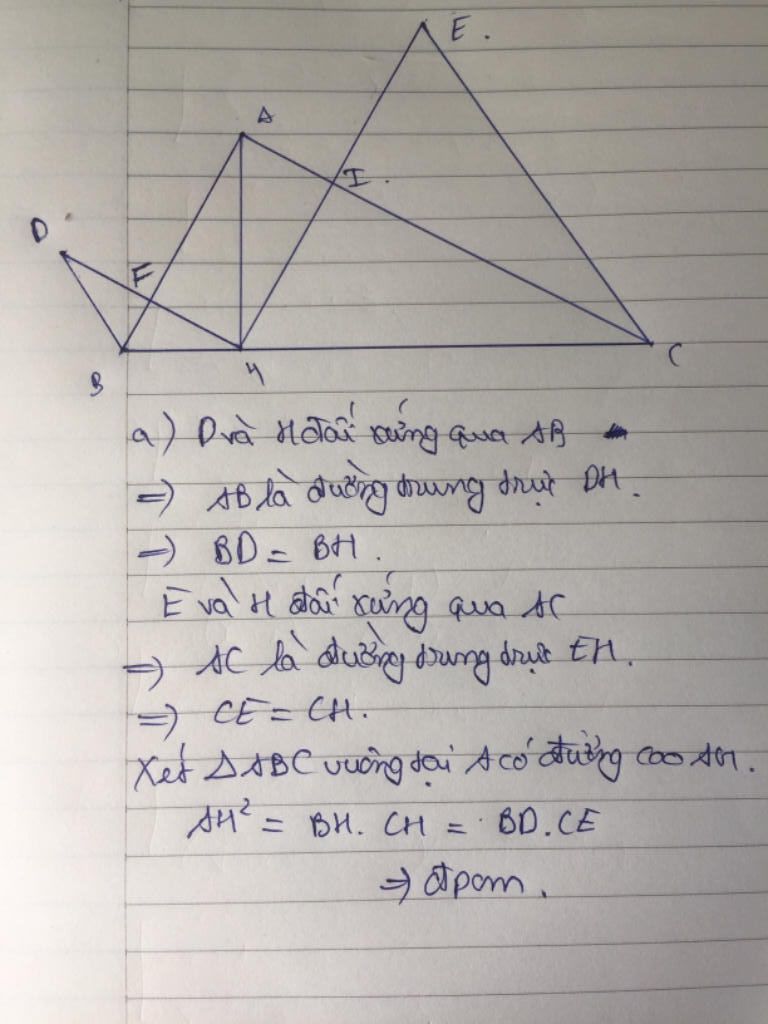 E.
A
I.
D
F
B
H
C
a) D và H đối xứng qua AB
=) AB là đường trung trực DH.
=) BD = BH.
E và H đối xứng qua AC
=) AC là đường trung trực EH.
=) CE = CH.
Xét ΔABC vuông tại A có đường cao AH.
AH² = BH. CH = BD.CE
=) đpcm.